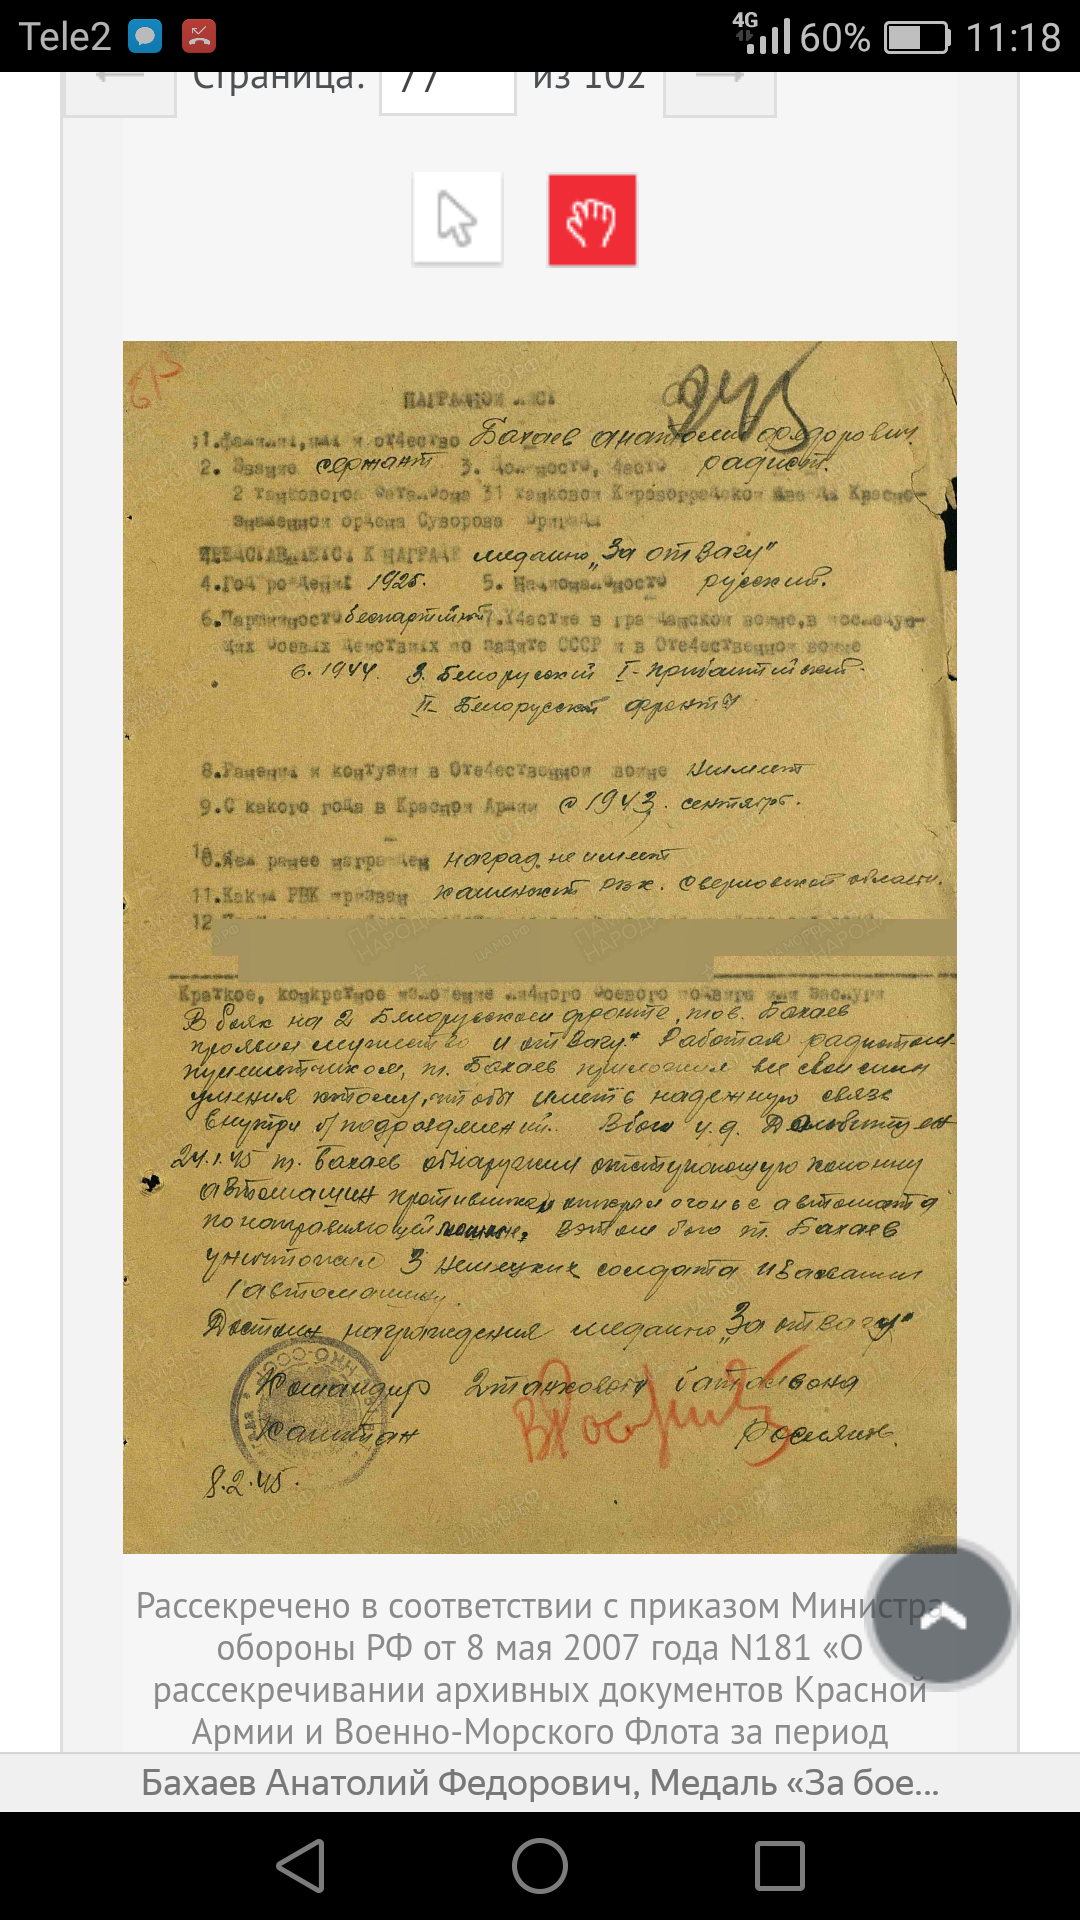 Tele2 4G 60% 11:18
Страница: 77 из 102
245
НАГРАДНОЙ ЛИСТ
1.Фамилия,имя и отчество Бахаев Анатолий Федорович.
2. Звание сержант 3. Должность, часть радист.
2 танкового баталиона 31 танковой Кировоградской дважды Красно-
знаменной ордена Суворова бригады
ПРЕДСТАВЛЯЕТСЯ К НАГРАДЕ медалию „За отвагу"
4.Год рождения 1925. 5. Национальность русский.
6.Партийность беспартийный 7.Участие в гражданской войне,в последую-
щих боевых действиях по защите СССР и в Отечественной войне
6.1944. 3. Белорусский I-Прибалтийский.
II- Белорусский фронты
8.Ранения и контузии в Отечественной войне не имеет
9.С какого года в Красной Армии с 1943. сентябрь.
10.Чем ранее награжден наград не имеет
11.Каким РВК призван рвк. Свердловской области.
12
Краткое, конкретное изложение личного боевого подвига или заслуги
В боях на 2 Белорусском фронте, тов. Бахаев
проявил мужество и отвагу. Работая радистом-
пулеметчиком, т. Бахаев приложил все свои силы
умения к тому, чтобы иметь надежную связь
внутри подразделений. В бою у.д.
24.1.45 т. Бахаев обнаружил отступающую колонну
автомашин противника, открыл огонь с автомата
по направляющей машине, в этом бою т. Бахаев
уничтожил 3 немецких солдата и
1 автомашину.
Достоин награждения медалию „За отвагу"
Командир 2 танкового баталиона
Капитан Росляков
8.2.45.
Рассекречено в соответствии с приказом Министра
обороны РФ от 8 мая 2007 года N181 «О
рассекречивании архивных документов Красной
Армии и Военно-Морского Флота за период
Бахаев Анатолий Федорович, Медаль «За бое...